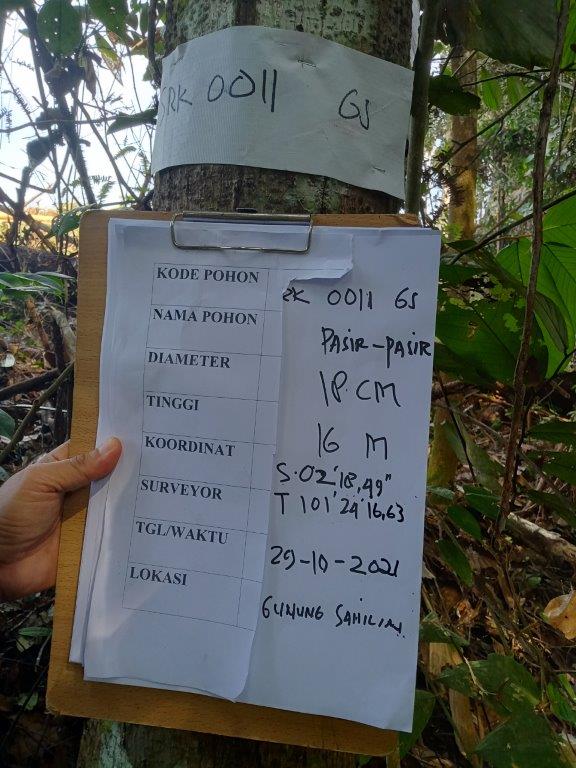 SRK 0011 GS
KODE POHON RK 0011 GS
NAMA POHON PASIR-PASIR
DIAMETER 18 CM
TINGGI 16 M
KOORDINAT S.02'18,49"
SURVEYOR T 101'24'16,63
TGL/WAKTU 29-10-2021
LOKASI GUNUNG SAHILAN